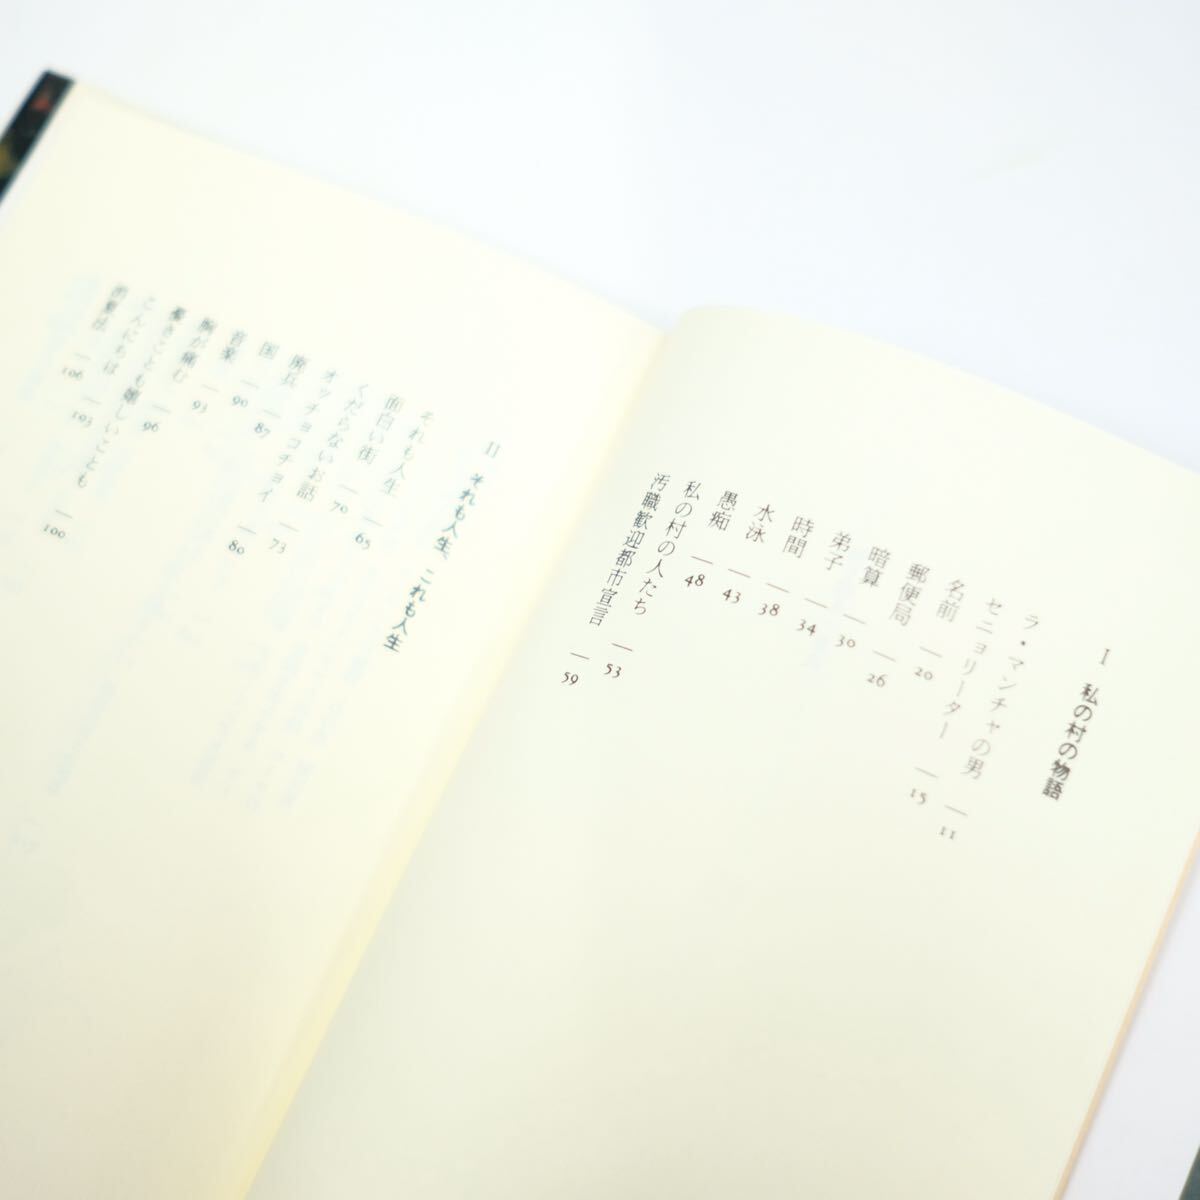 I 私の村の物語
ラ・マンチャの男 — 11
セニョリーター — 15
名前 — 20
郵便局 — 26
暗算 — 30
弟子 — 34
時間 — 38
水泳 — 43
愚痴 — 48
私の村の人たち — 53
汚職歓迎都市宣言 — 59
II それも人生、これも人生
それも人生 — 65
面白い街 — 70
くだらないお話 — 73
オッチョコチョイ — 80
廃兵 — 87
国 — 90
音楽 — 93
胸が痛む — 96
憂きことも嬉しいことも — 100
こんにちは — 103
出来心 — 106